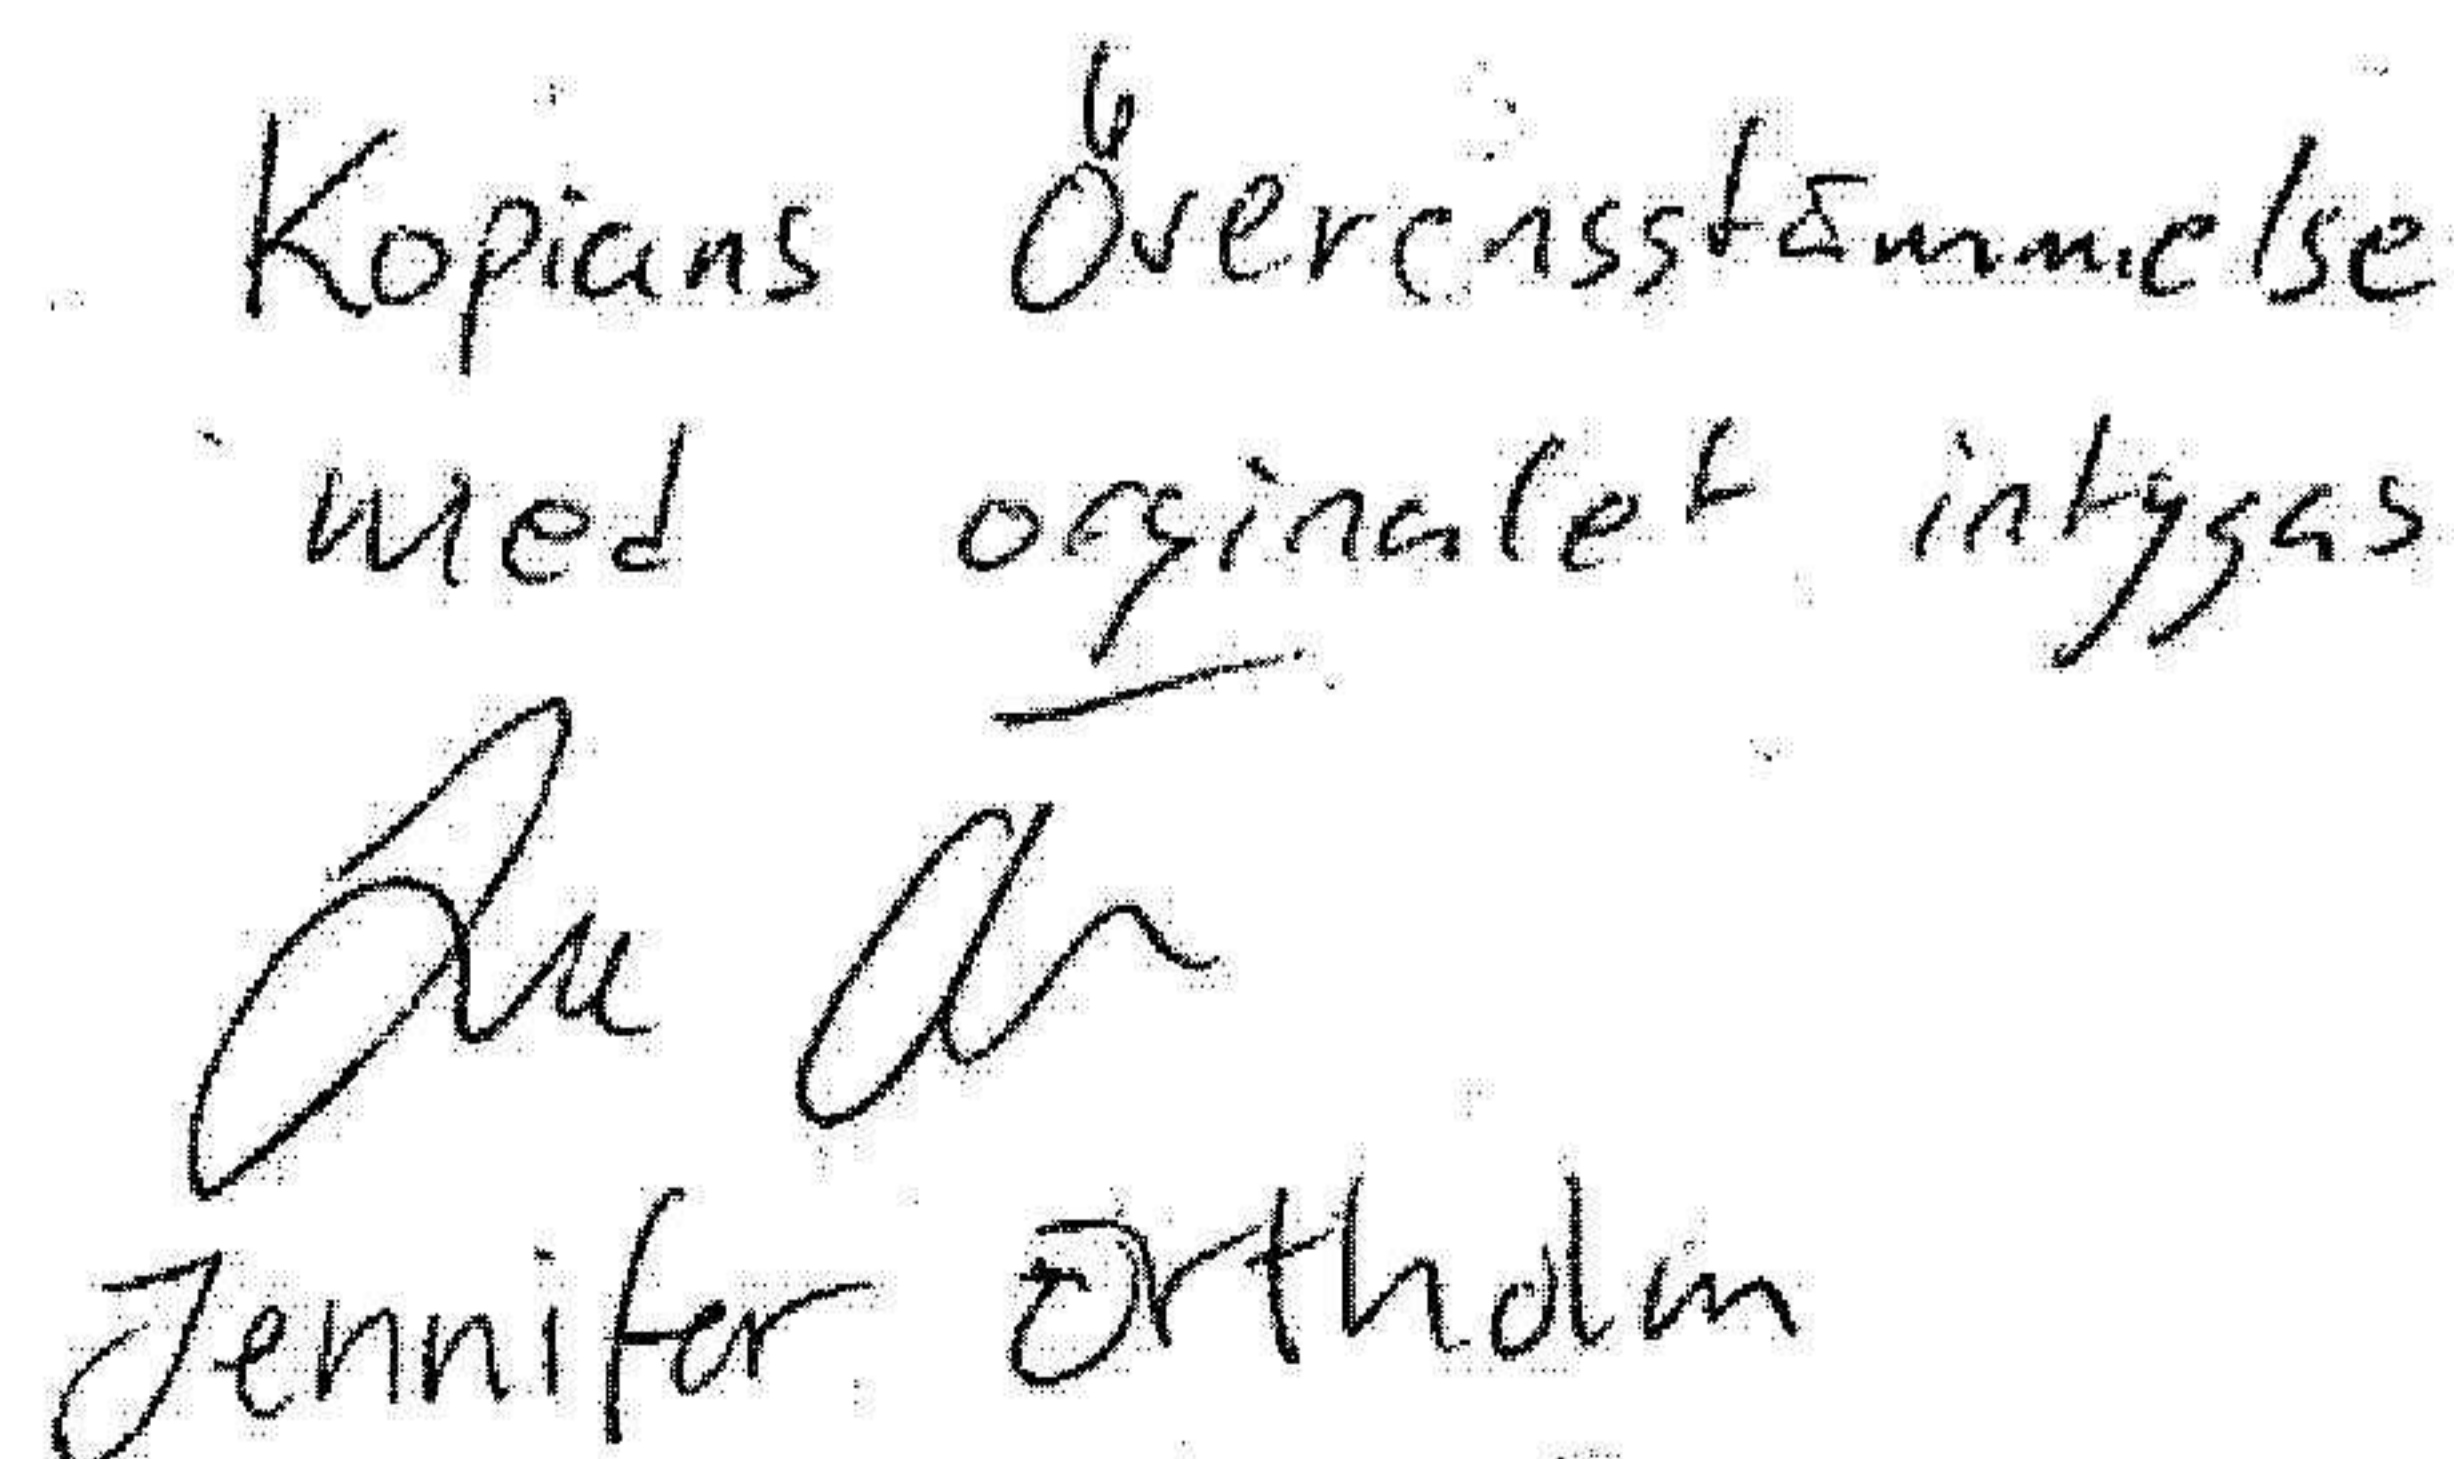 Kopians Överensstämmelse
med orginalet intygas
Jennifer Ortholm